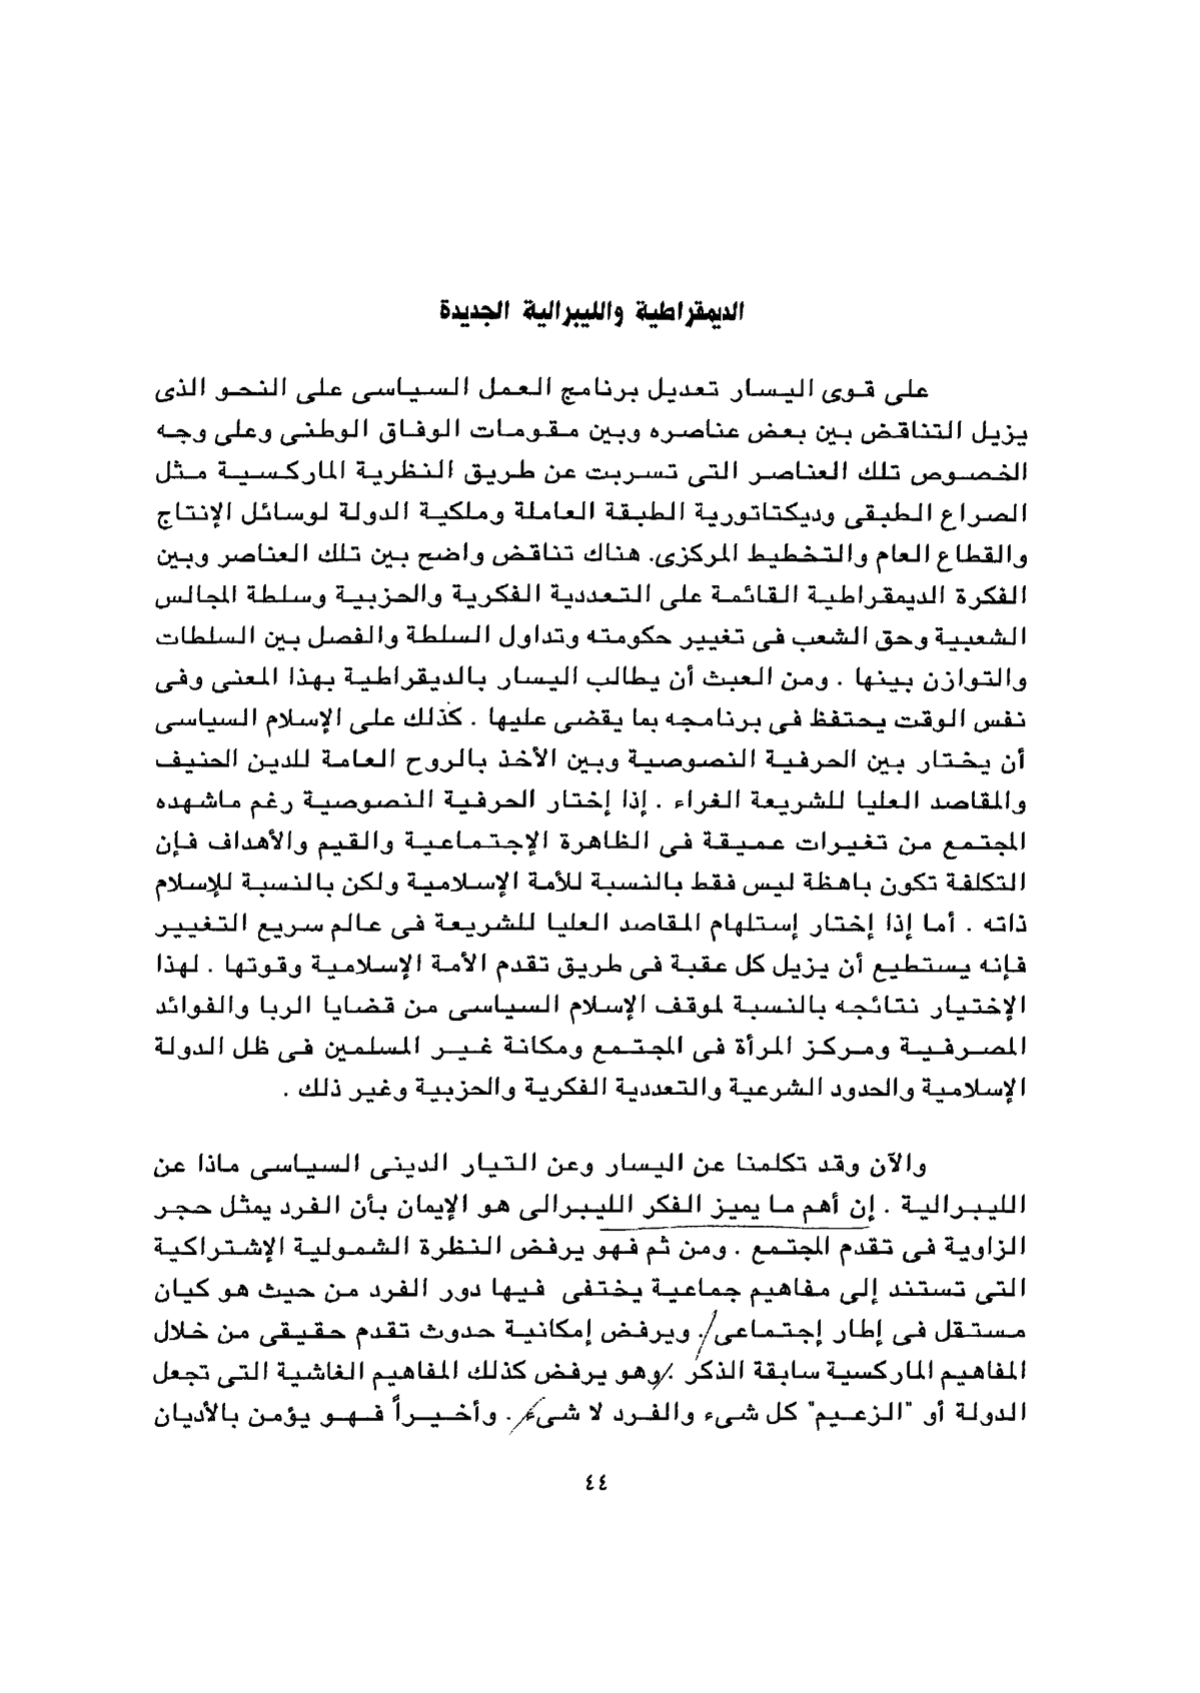 الديمقراطية والليبرالية الجديدة
على قوى اليسار تعديل برنامج العمل السياسى على النحو الذى
يزيل التناقض بين بعض عناصره وبين مقومات الوفاق الوطنى وعلى وجه
الخصوص تلك العناصر التى تسربت عن طريق النظرية الماركسية مثل
الصراع الطبقى وديكتاتورية الطبقة العاملة وملكية الدولة لوسائل الإنتاج
والقطاع العام والتخطيط المركزى. هناك تناقض واضح بين تلك العناصر وبين
الفكرة الديمقراطية القائمة على التعددية الفكرية والحزبية وسلطة المجالس
الشعبية وحق الشعب فى تغيير حكومته وتداول السلطة والفصل بين السلطات
والتوازن بينها . ومن العبث أن يطالب اليسار بالديقراطية بهذا المعنى وفى
نفس الوقت يحتفظ فى برنامجه بما يقضى عليها . كذلك على الإسلام السياسى
أن يختار بين الحرفية النصوصية وبين الأخذ بالروح العامة للدين الحنيف
والمقاصد العليا للشريعة الغراء . إذا إختار الحرفية النصوصية رغم ماشهده
المجتمع من تغيرات عميقة فى الظاهرة الإجتماعية والقيم والأهداف فإن
التكلفة تكون باهظة ليس فقط بالنسبة للأمة الإسلامية ولكن بالنسبة للإسلام
ذاته . أما إذا إختار إستلهام المقاصد العليا للشريعة فى عالم سريع التغيير
فإنه يستطيع أن يزيل كل عقبة فى طريق تقدم الأمة الإسلامية وقوتها . لهذا
الإختيار نتائجه بالنسبة لموقف الإسلام السياسى من قضايا الربا والفوائد
المصرفية ومركز المرأة فى المجتمع ومكانة غير المسلمين فى ظل الدولة
الإسلامية والحدود الشرعية والتعددية الفكرية والحزبية وغير ذلك .
والآن وقد تكلمنا عن اليسار وعن التيار الدينى السياسى ماذا عن
الليبرالية . إن أهم ما يميز الفكر الليبرالى هو الإيمان بأن الفرد يمثل حجر
الزاوية فى تقدم المجتمع . ومن ثم فهو يرفض النظرة الشمولية الإشتراكية
التى تستند إلى مفاهيم جماعية يختفى فيها دور الفرد من حيث هو كيان
مستقل فى إطار إجتماعى . ويرفض إمكانية حدوث تقدم حقيقى من خلال
المفاهيم الماركسية سابقة الذكر . وهو يرفض كذلك المفاهيم الفاشية التى تجعل
الدولة أو "الزعيم" كل شىء والفرد لا شىء . وأخيراً فهو يؤمن بالأديان
٤٤